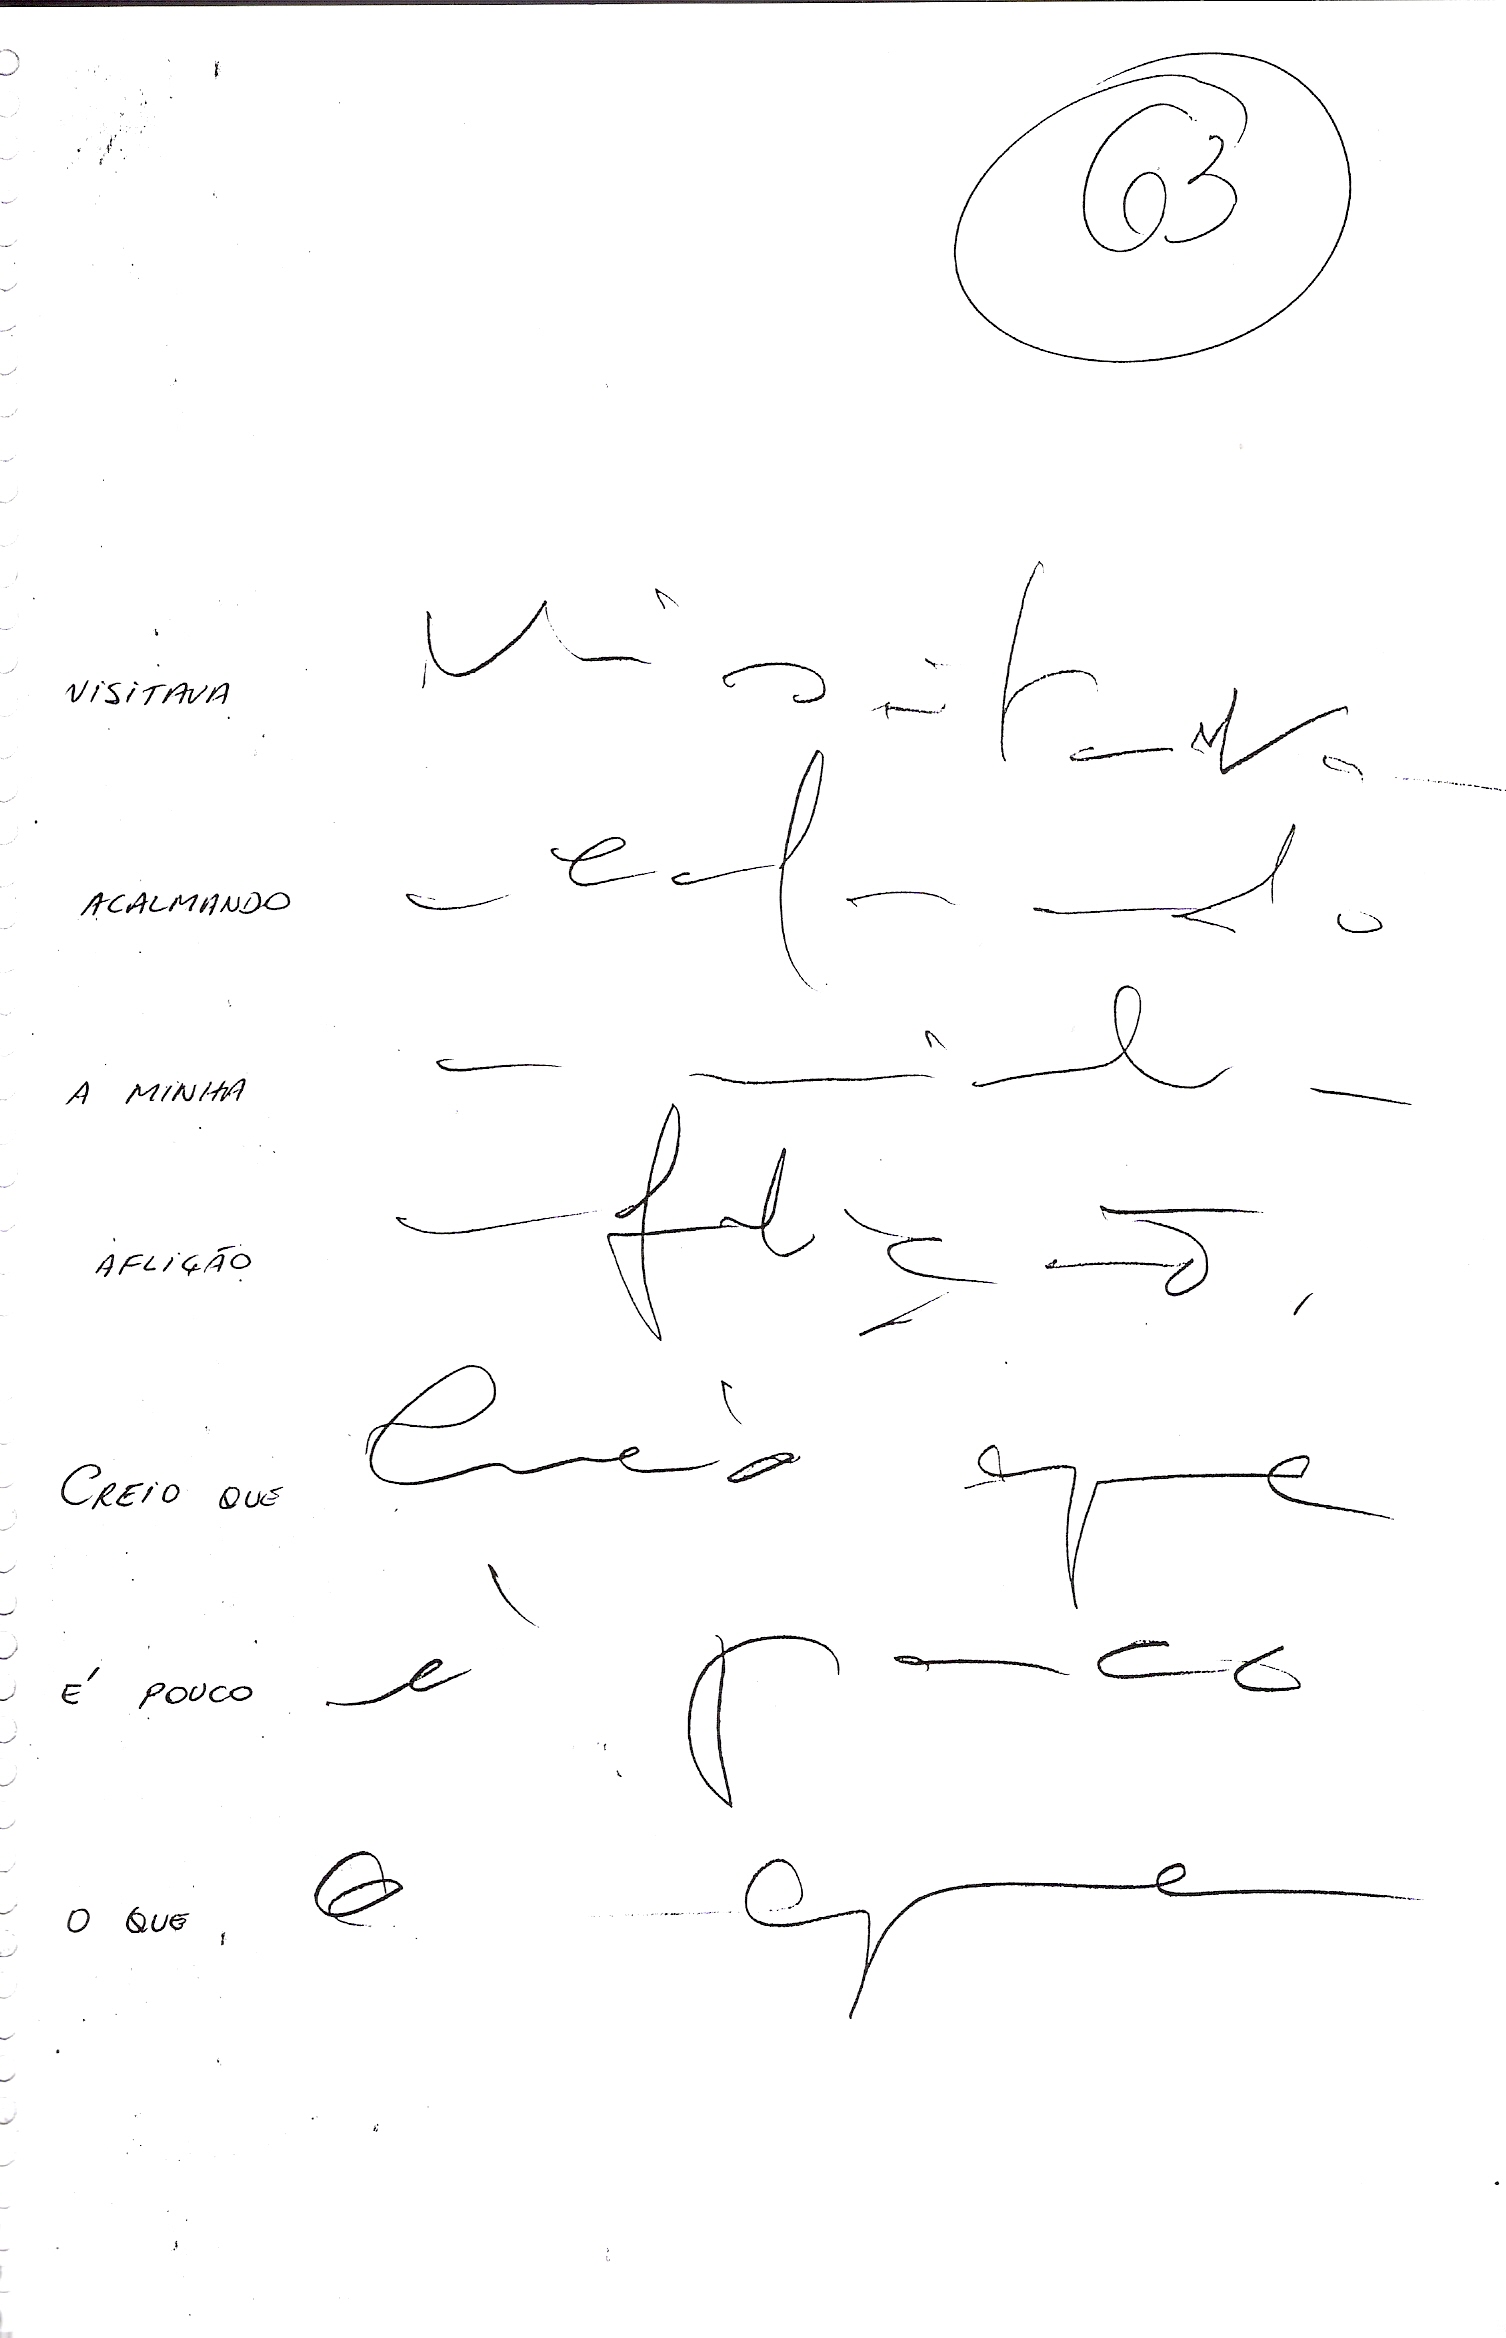 63
VISITAVA Visitava
ACALMANDO acalmando
A MINHA a minha
AFLIÇÃO aflição,
CREIO QUE Creio que
É POUCO é pouco
O QUE, O que